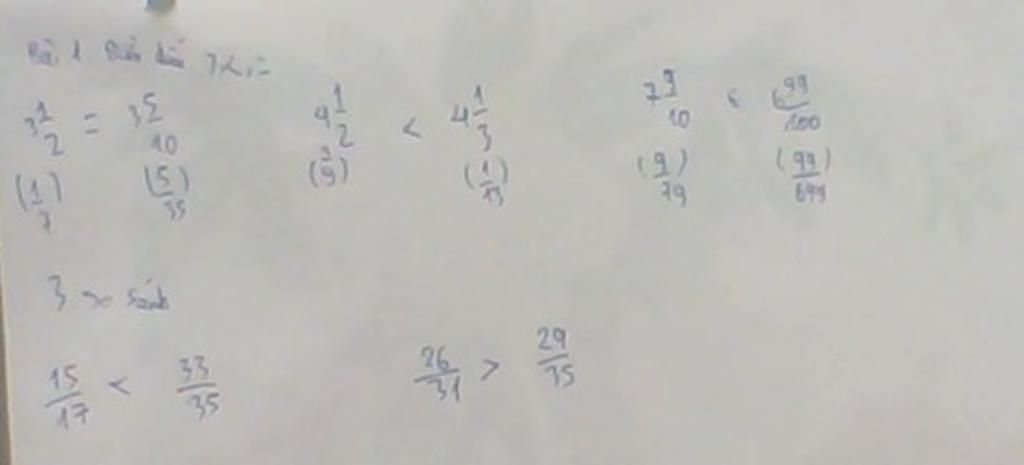 Bài 1 Điền dấu >,<,=
3 1/2 = 3 5/10 4 1/2 < 4 1/3 7 9/10 < 6 99/100
(1/7) (5/35) (1/9) (1/13) (9/79) (99/699)
3 So sánh
15/17 < 33/35 26/31 > 29/35